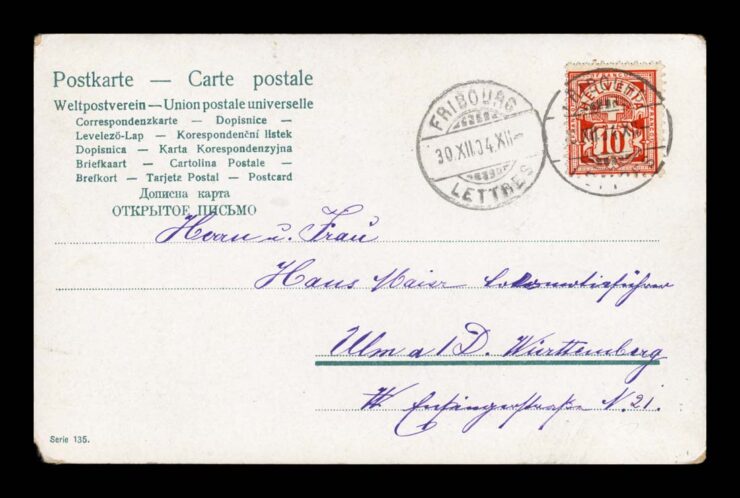 Postkarte — Carte postale
Weltpostverein — Union postale universelle
Correspondenzkarte — Dopisnice —
Levelező-Lap — Korespondenční lístek
Dopisnica — Karta Korespondenzyjna
Briefkaart — Cartolina Postale —
Brefkort — Tarjete Postal — Postcard
Дописна карта
ОТКРЫТОЕ ПИСЬМО
FRIBOURG
30.XII.04.XII-
LETTRES
HELVETIA
10
Herrn u. Frau
Hans Maier Lokomotivführer
Ulm a/D. Württemberg
N. 21.
Serie 135.